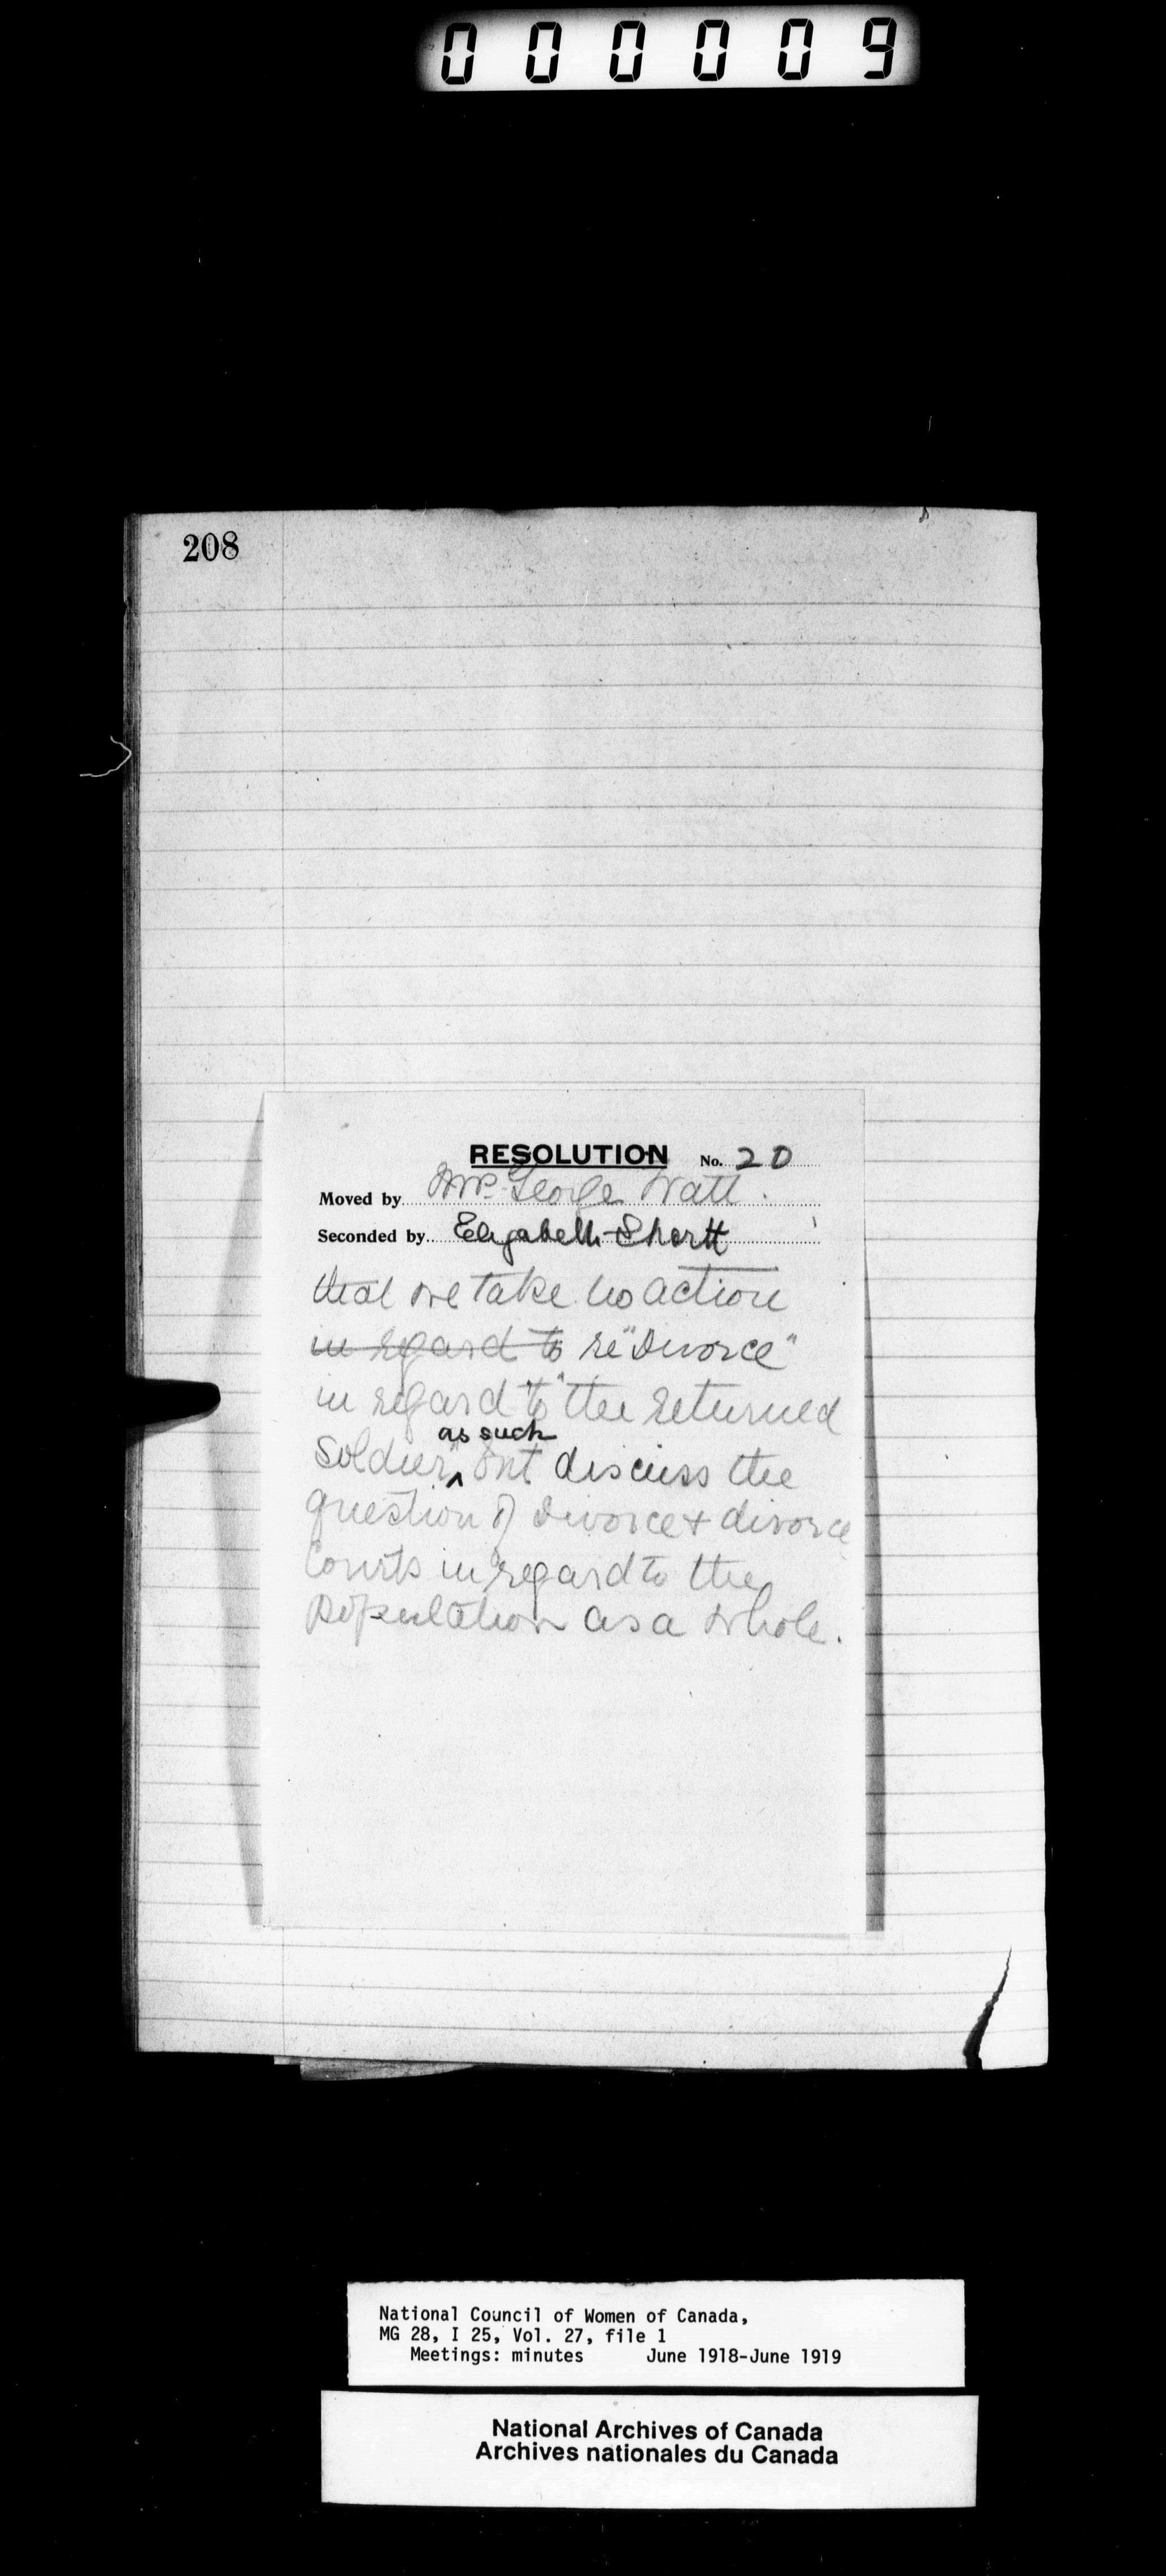 000009
208
RESOLUTION No. 20
Moved by Mrs. George Watt.
Seconded by Elizabeth Shortt
that we take no action
in regard to re "Divorce"
in regard to "the returned
as such
soldier" but discuss the
question of Divorce & divorce
Courts in regard to the
population as a whole.
National Council of Women of Canada,
MG 28, I 25, Vol. 27, file 1
Meetings: minutes June 1918-June 1919
National Archives of Canada
Archives nationales du Canada